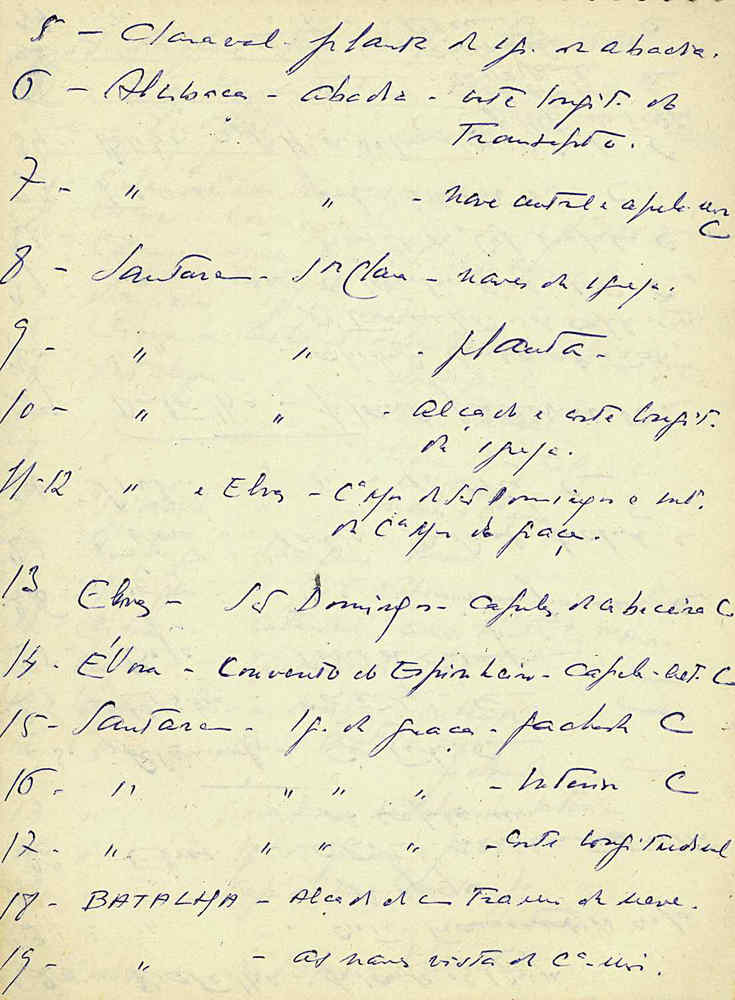 5 - Claraval - planta da ig. da abadia.
6 - Alcobaça - abadia - corte longit. do
Transepto.
7 - " " - nave central e capela-mor
C
8 - Santarem - Sta Clara - naves da igreja.
9 - " " - planta -
10 - " " - alçado e corte longit.
da igreja.
11-12 " e Elvas - Ca Mor de São Domingos e
da Ca Mor da Graça.
13 Elvas - São Domingos - capelas da cabeceira C
14 - Évora - Convento do Espinheiro - Capela- C
15 - Santarem - Ig. da Graça - fachada C
16 - " " " " - Interior C
17 - " " " " - Corte longitudinal
18 - BATALHA - Alçado de um Tramo da nave.
19 - " - as naves vista da Ca-mor.